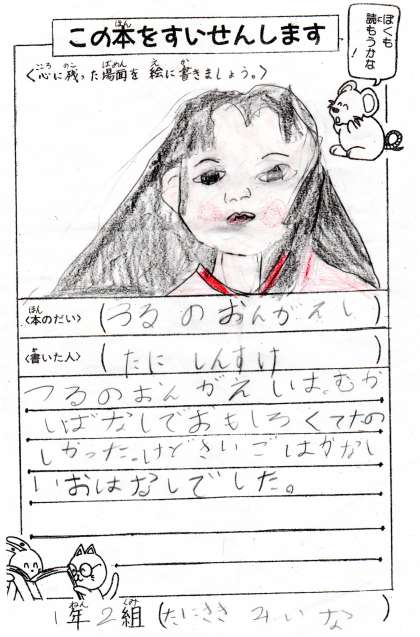 この本をすいせんします
ぼくも
読もうかな
!
<心に残った場面を 絵に書きましょう。>
<本のだい> (つるのおんがえし)
<書いた人> (たに しんすけ)
つるのおんがえしは、むか
しばなしでおもしろくてたの
しかった。けどさいごはかなし
いおはなしでした。
1年2組 (たにさき みいな)